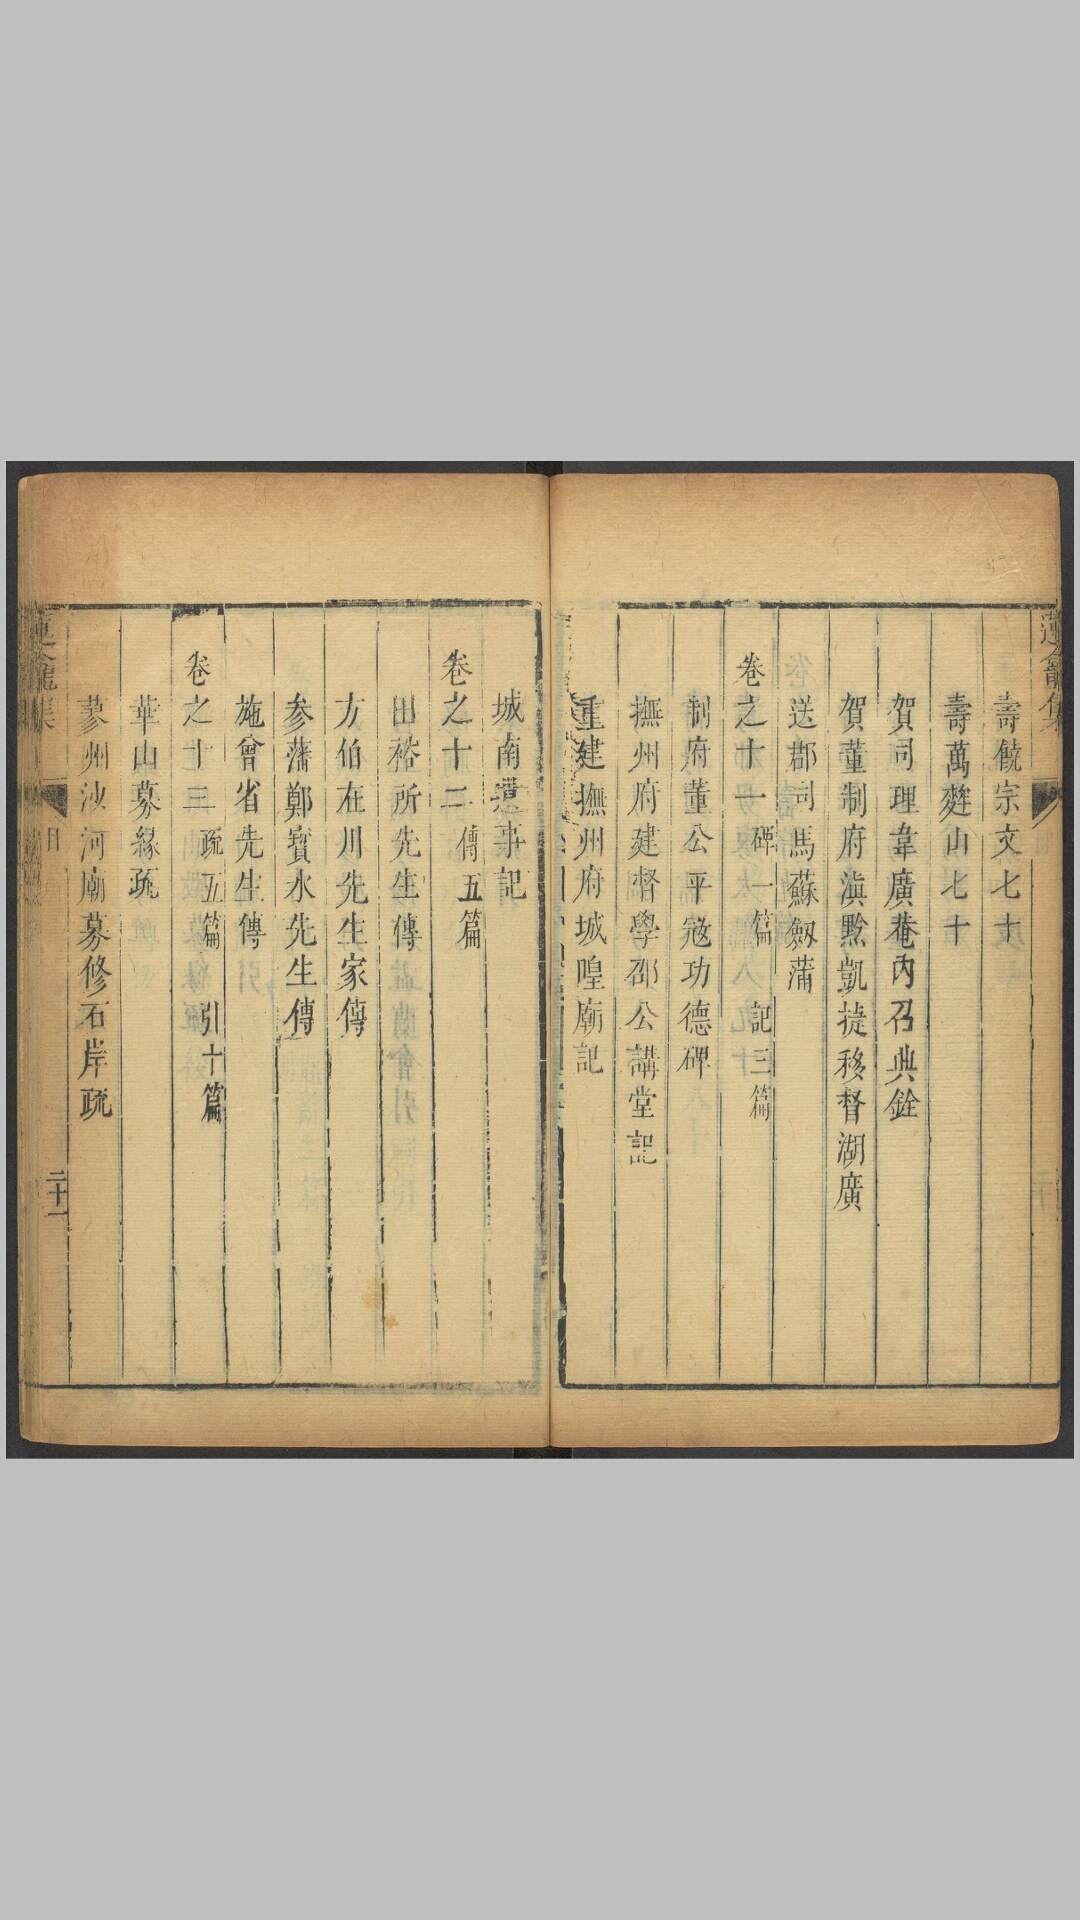 壽饒宗文七十
壽萬麰山七十
賀司理韋廣菴內召典銓
賀董制府滇黔凱㨗移督湖廣
送郡司馬蘇劔蒲
卷之十一 碑一篇 記三篇
制府董公平寇功德碑
撫州府建督學邵公講堂記
重建撫州府城隍廟記
城南遺事記
卷之十二 傳五篇
田裕所先生傳
方伯在川先生家傳
参藩鄭寳水先生傳
施會省先生傳
卷之十三 疏五篇 引十篇
華山募緣疏
蓼州沙河廟募修石岸疏
蓮龕集
目
二十一